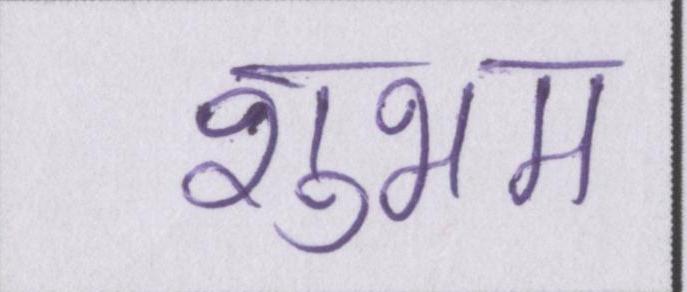 शुभम